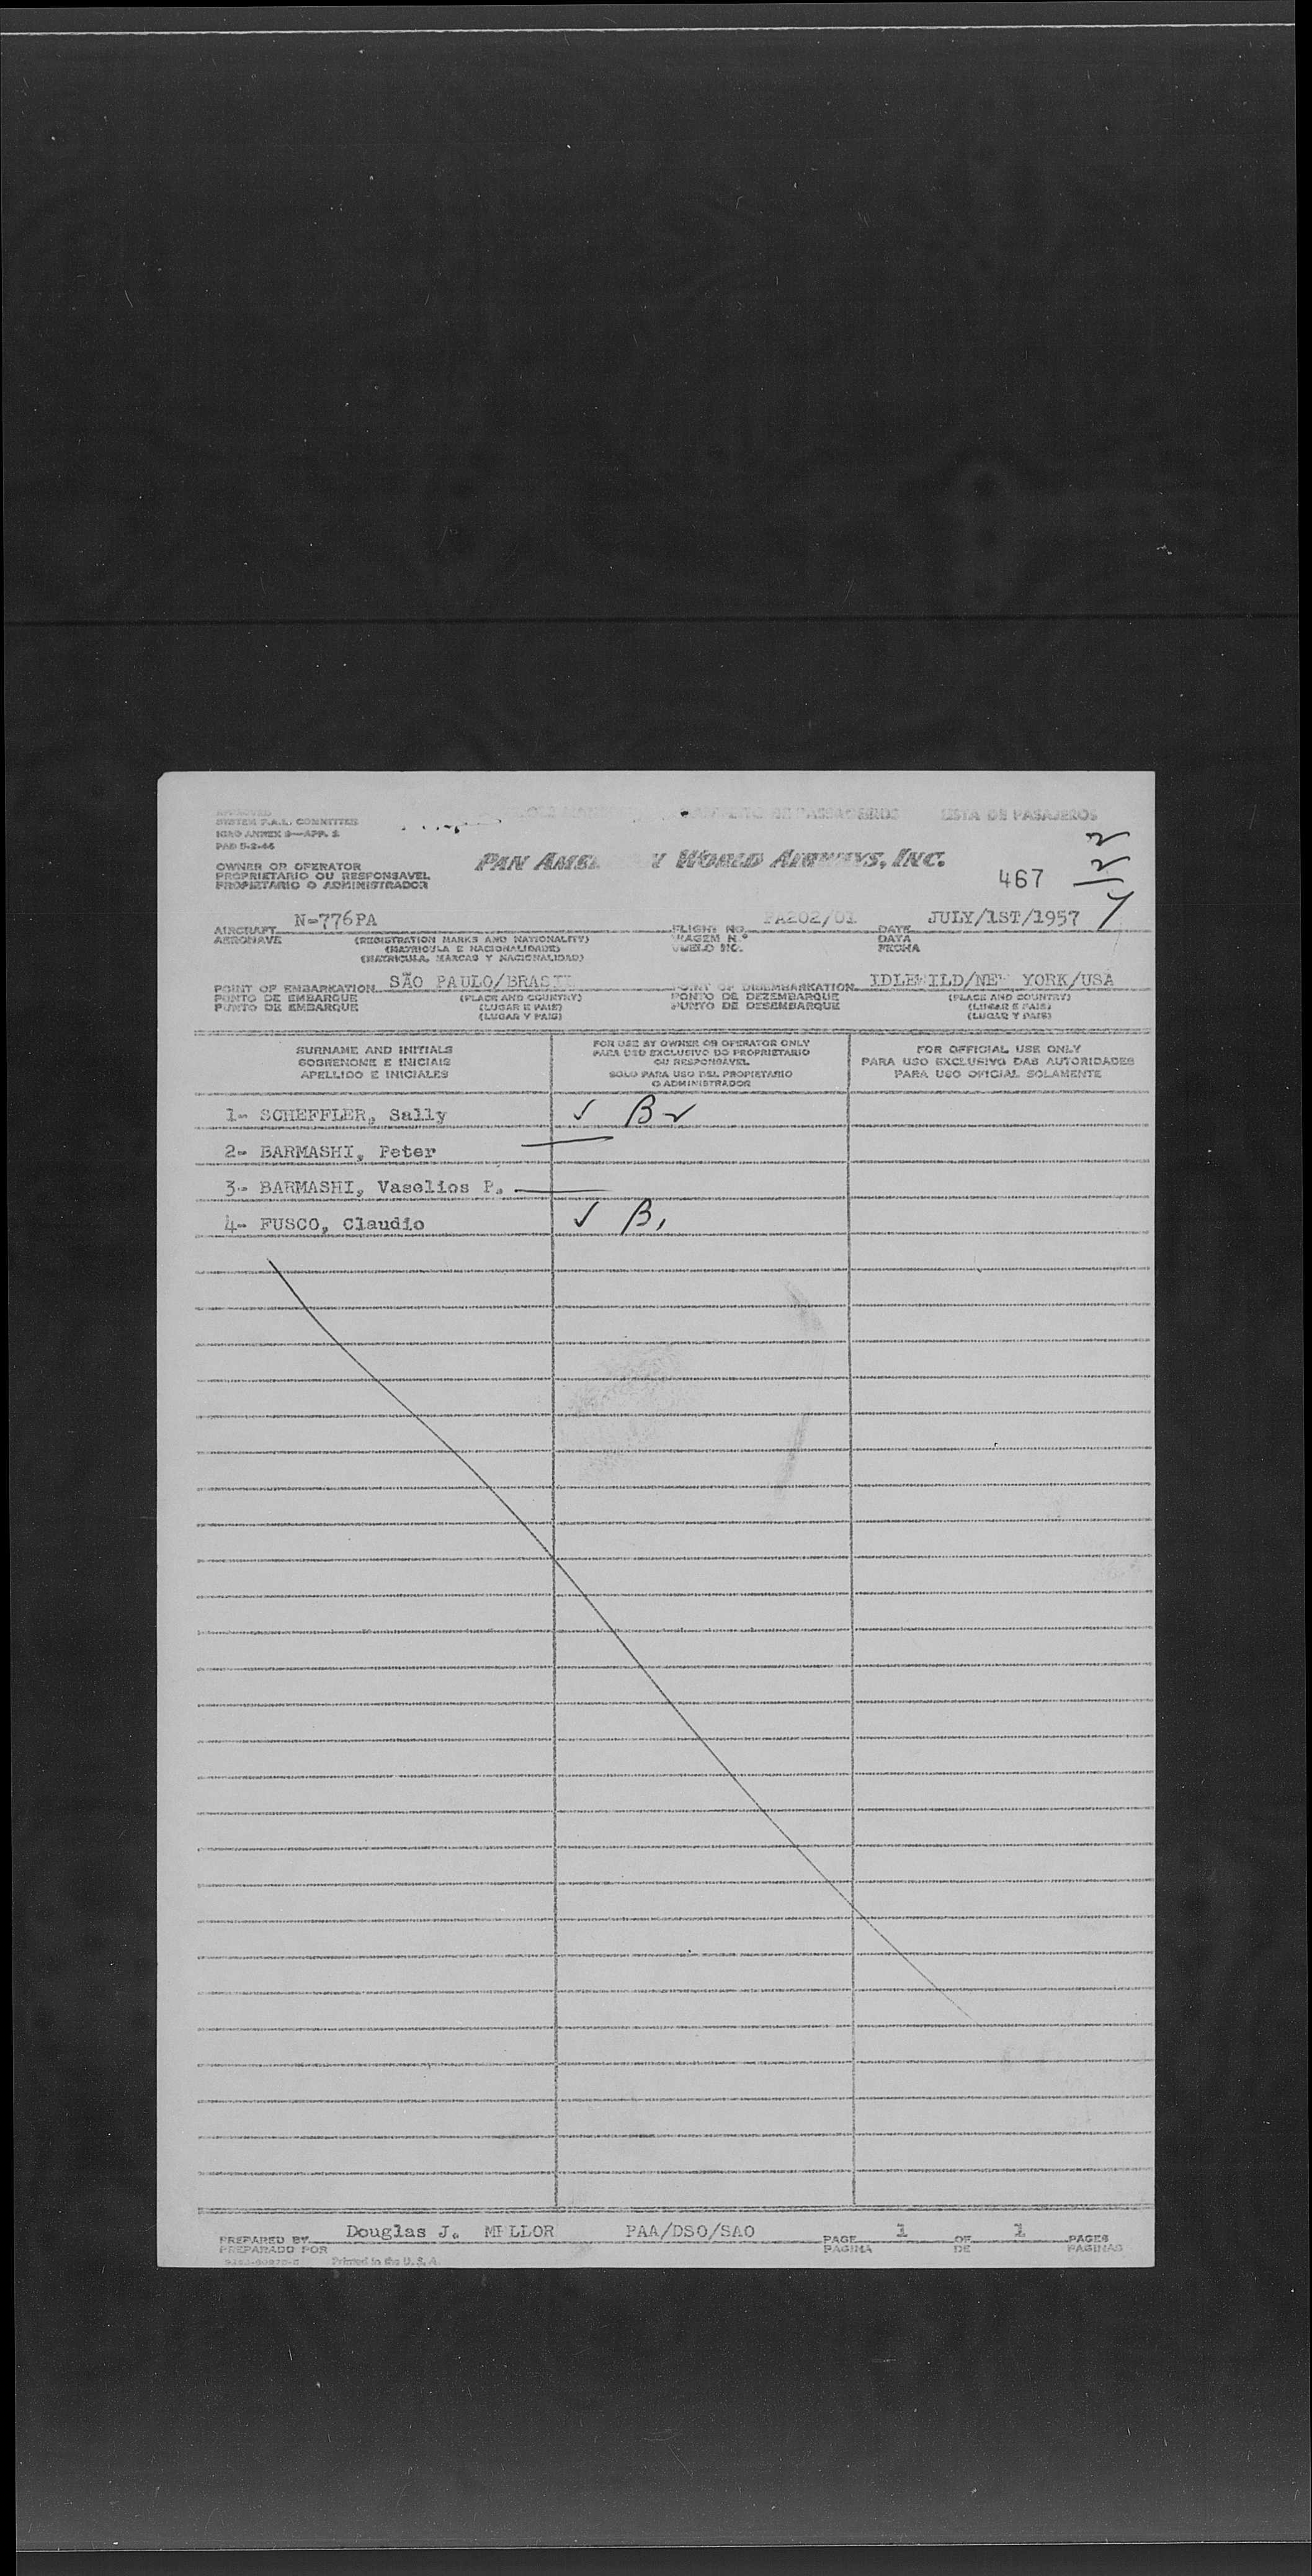 APPROVED
SYSTEM F.A.L. COMMITTEE
ICAO ANNEX 9—APP. 2
PAD 5-2-46
DE PASSAGEIROS LISTA DE PASAJEROS
OWNER OR OPERATOR
PROPRIETARIO OU RESPONSAVEL
PROPIETARIO O ADMINISTRADOR
PAN AME Y WORLD AIRWAYS, INC.
467
AIRCRAFT N-776PA
AERONAVE
(REGISTRATION MARKS AND NATIONALITY)
(MATRICULA E NACIONALIDADE)
(MATRICULA, MARCAS Y NACIONALIDAD)
FLIGHT NO. PA202/01
VIAGEM N.º
VUELO NO.
DATE JULY/1ST/1957
DATA
FECHA
POINT OF EMBARKATION SÃO PAULO/BRASIL
PONTO DE EMBARQUE
PUNTO DE EMBARQUE
(PLACE AND COUNTRY)
(LUGAR E PAIS)
(LUGAR Y PAIS)
POINT OF DISEMBARKATION IDLEWILD/NEW YORK/USA
PONTO DE DEZEMBARQUE
PUNTO DE DESEMBARQUE
(PLACE AND COUNTRY)
(LUGAR E PAIS)
(LUGAR Y PAIS)
SURNAME AND INITIALS
SOBRENOME E INICIAIS
APELLIDO E INICIALES
FOR USE BY OWNER OR OPERATOR ONLY
PARA USO EXCLUSIVO DO PROPRIETARIO
OU RESPONSAVEL
SOLO PARA USO DEL PROPIETARIO
O ADMINISTRADOR
FOR OFFICIAL USE ONLY
PARA USO EXCLUSIVO DAS AUTORIDADES
PARA USO OFICIAL SOLAMENTE
1- SCHEFFLER, Sally ✓ B
2- BARMASHI, Peter
3- BARMASHI, Vaselios P.
4- FUSCO, Claudio ✓ B
PREPARED BY Douglas J. MELLOR PAA/DSO/SAO PAGE 1 OF 1 PAGES
PREPARADO POR PAGINA DE PAGINAS
Printed in the U. S. A.